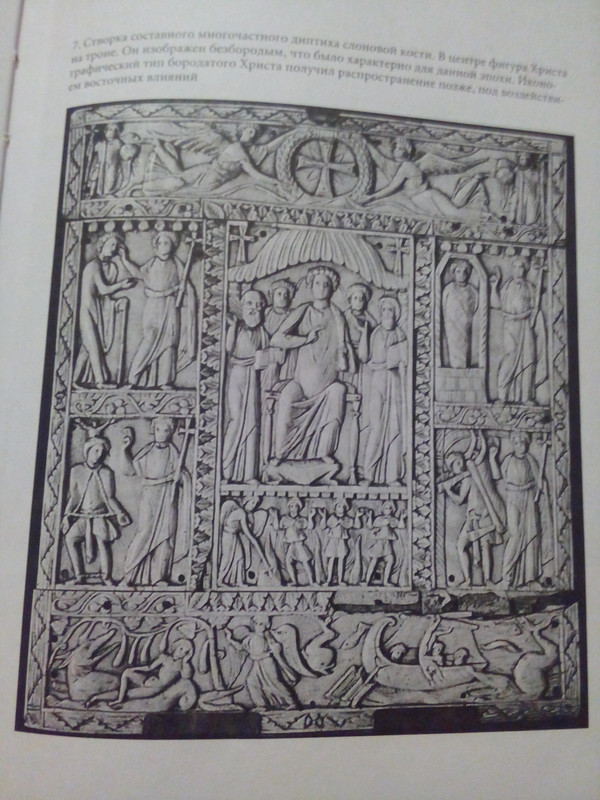 7. Створка составного многочастного диптиха слоновой кости. В центре фигура Христа
на троне. Он изображен безбородым, что было характерно для данной эпохи. Иконо-
графический тип бородатого Христа получил распространение позже, под воздействи-
ем восточных влияний